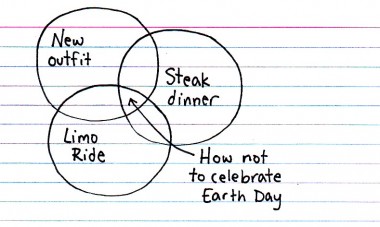 New
outfit
Steak
dinner
Limo
Ride
How not
to celebrate
Earth Day